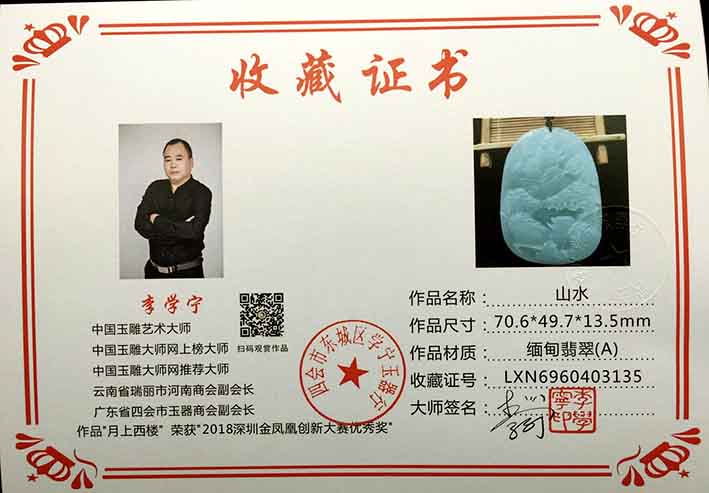 收藏证书
李学宁
扫码观赏作品
中国玉雕艺术大师
中国玉雕大师网上榜大师
中国玉雕大师网推荐大师
云南省瑞丽市河南商会副会长
广东省四会市玉器商会副会长
作品"月上西楼" 荣获"2018深圳金凤凰创新大赛优秀奖"
四会市东城区学宁玉器行
作品名称：山水
作品尺寸：70.6*49.7*13.5mm
作品材质：缅甸翡翠(A)
收藏证号：LXN6960403135
大师签名：
李學寧印